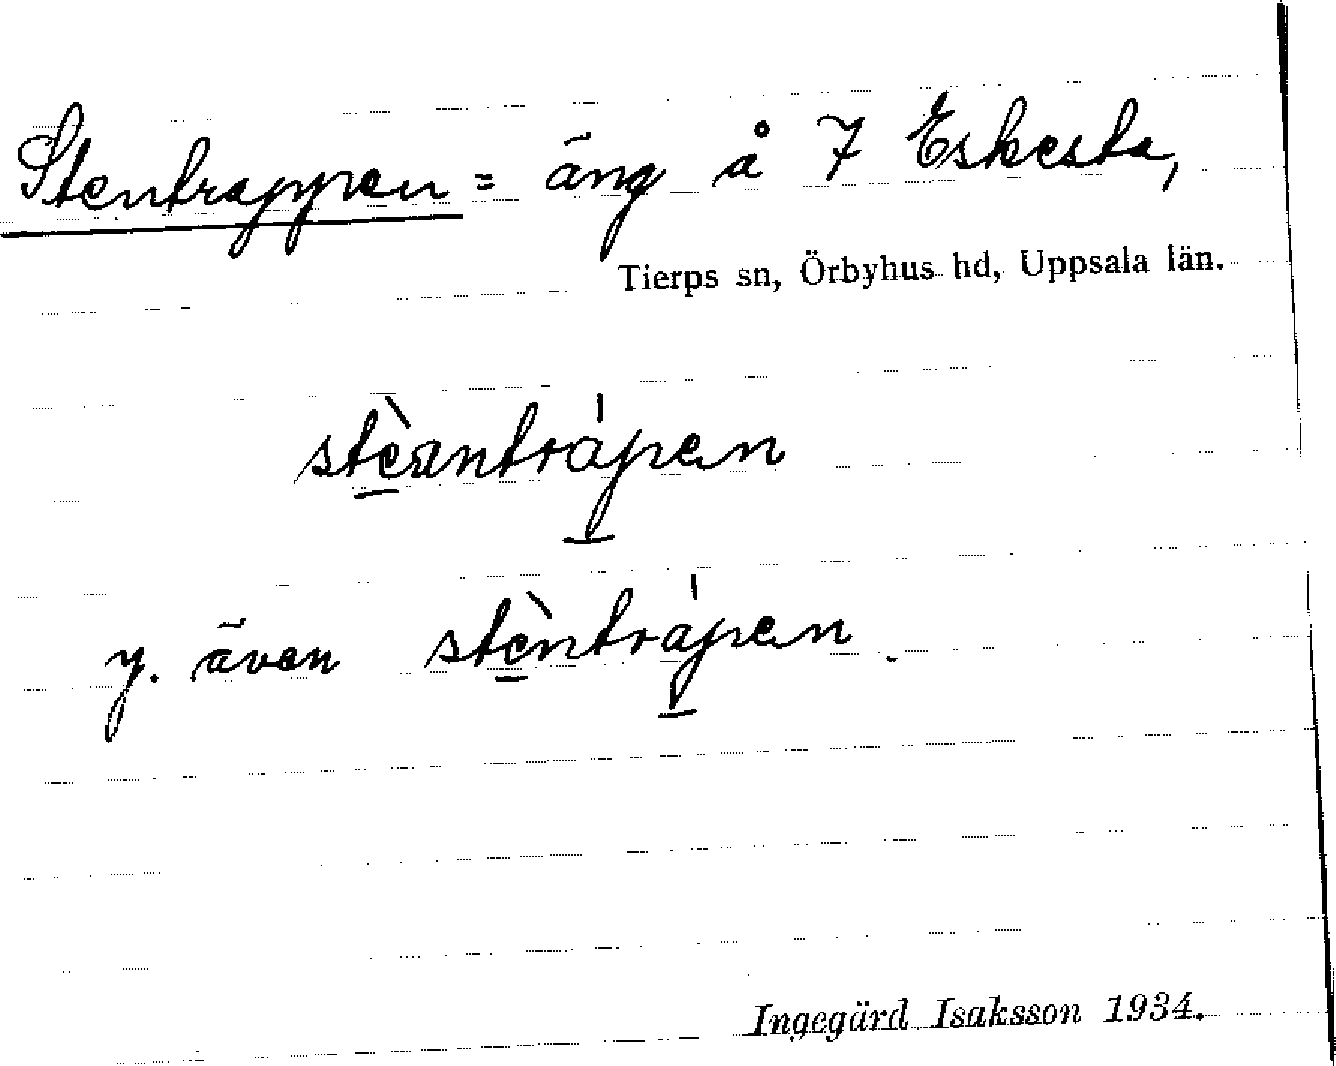 Stentrappen = äng å 7 Eskesta,
Tierps sn, Örbyhus hd, Uppsala län.
stèantrápen
y. även stèntrápen.
Ingegärd Isaksson 1934.